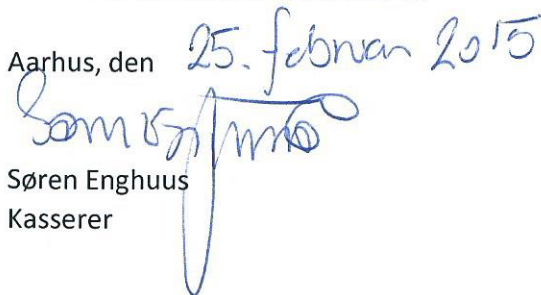 Aarhus, den 25. februar 2015
Søren Enghuus
Kasserer